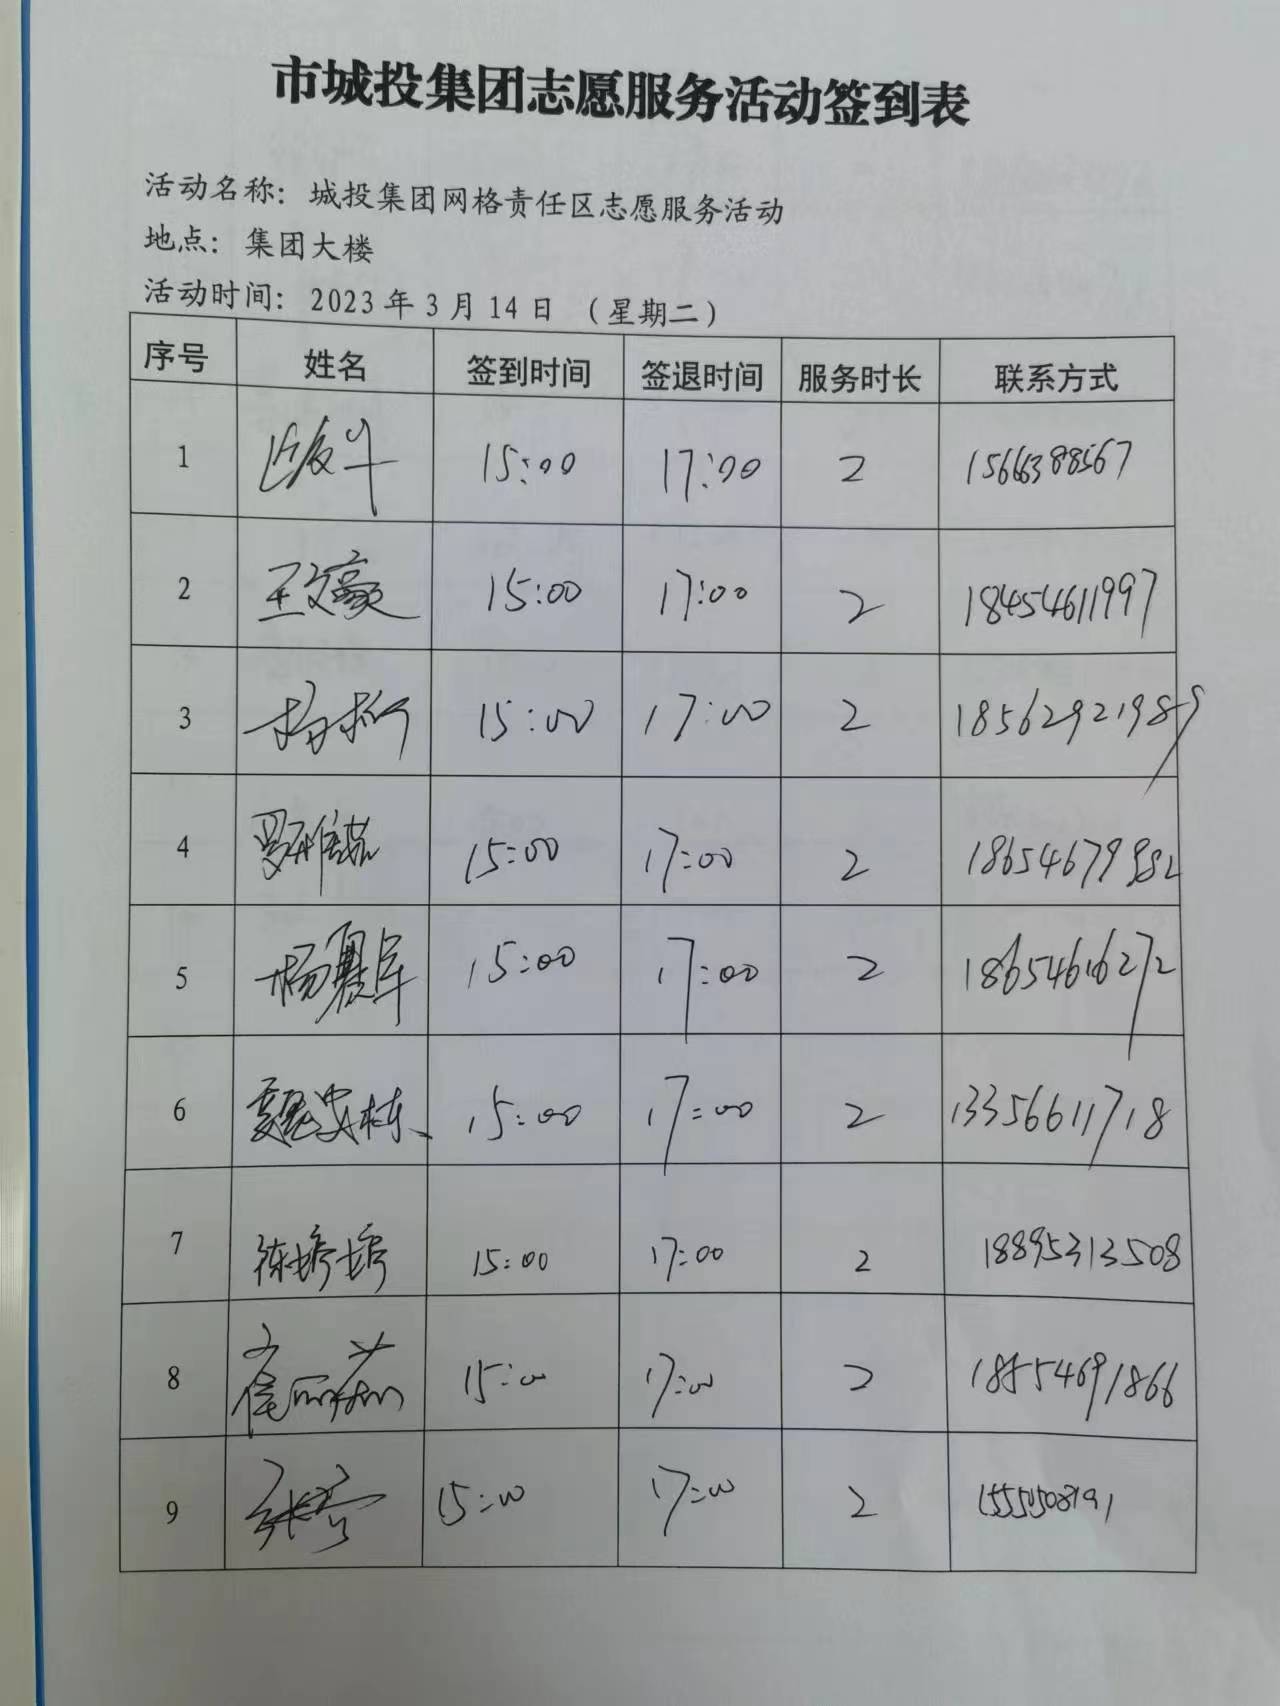 市城投集团志愿服务活动签到表
活动名称：城投集团网格责任区志愿服务活动
地点：集团大楼
活动时间：2023年3月14日 （星期二）
序号 姓名 签到时间 签退时间 服务时长 联系方式
1 15:00 17:00 2 15666388567
2 王文豪 15:00 17:00 2 18454611997
3 杨柳 15:00 17:00 2 18562921989
4 15:00 17:00 2 18654679982
5 杨夏军 15:00 17:00 2 18654616272
6 魏安栋 15:00 17:00 2 13356611718
7 陈婷婷 15:00 17:00 2 18895313508
8 崔丽茹 15:00 17:00 2 18554691866
9 15:00 17:00 2